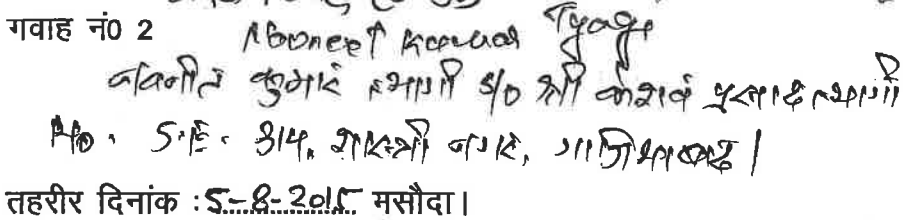 गवाह नं0 2 Navneet Kumar Tyagi
नवनीत कुमार त्यागी S/o श्री केशव प्रसाद त्यागी
R/o. S.E. 314, शास्त्री नगर, गाजियाबाद।
तहरीर दिनांक :5-8-2015 मसौदा।